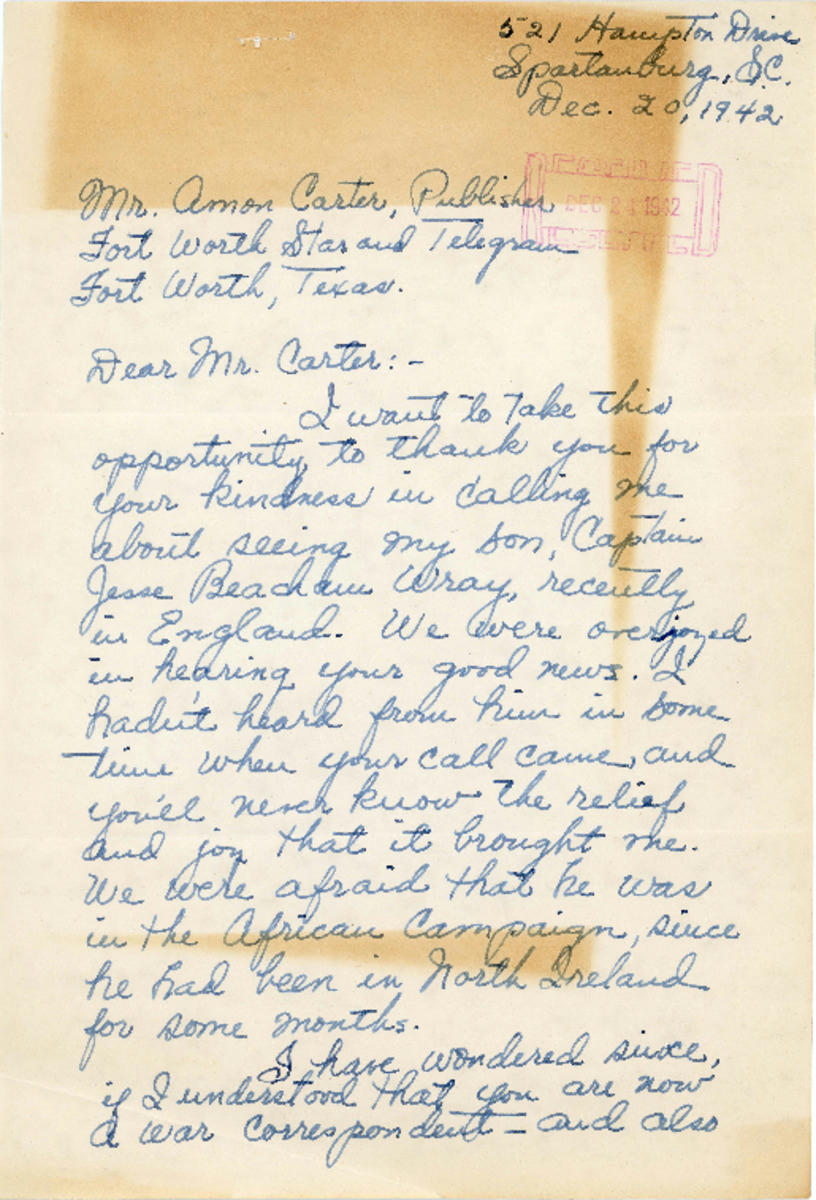 521 Hampton Drive
Spartanburg, S.C.
Dec. 20, 1942
Mr. Amon Carter, Publisher
DEC 21 1942
Fort Worth Star and Telegram
Fort Worth, Texas.
Dear Mr. Carter:-
I want to take this
opportunity to thank you for
your kindness in calling me
about seeing my son, Captain
Jesse Beacham Wray, recently
in England. We were overjoyed
in hearing your good news. I
hadn't heard from him in some
time when your call came, and
you'll never know the relief
and joy that it brought me.
We were afraid that he was
in the African Campaign, since
he had been in North Ireland
for some months.
I have wondered since,
if I understood that you are now
a war correspondent - and also